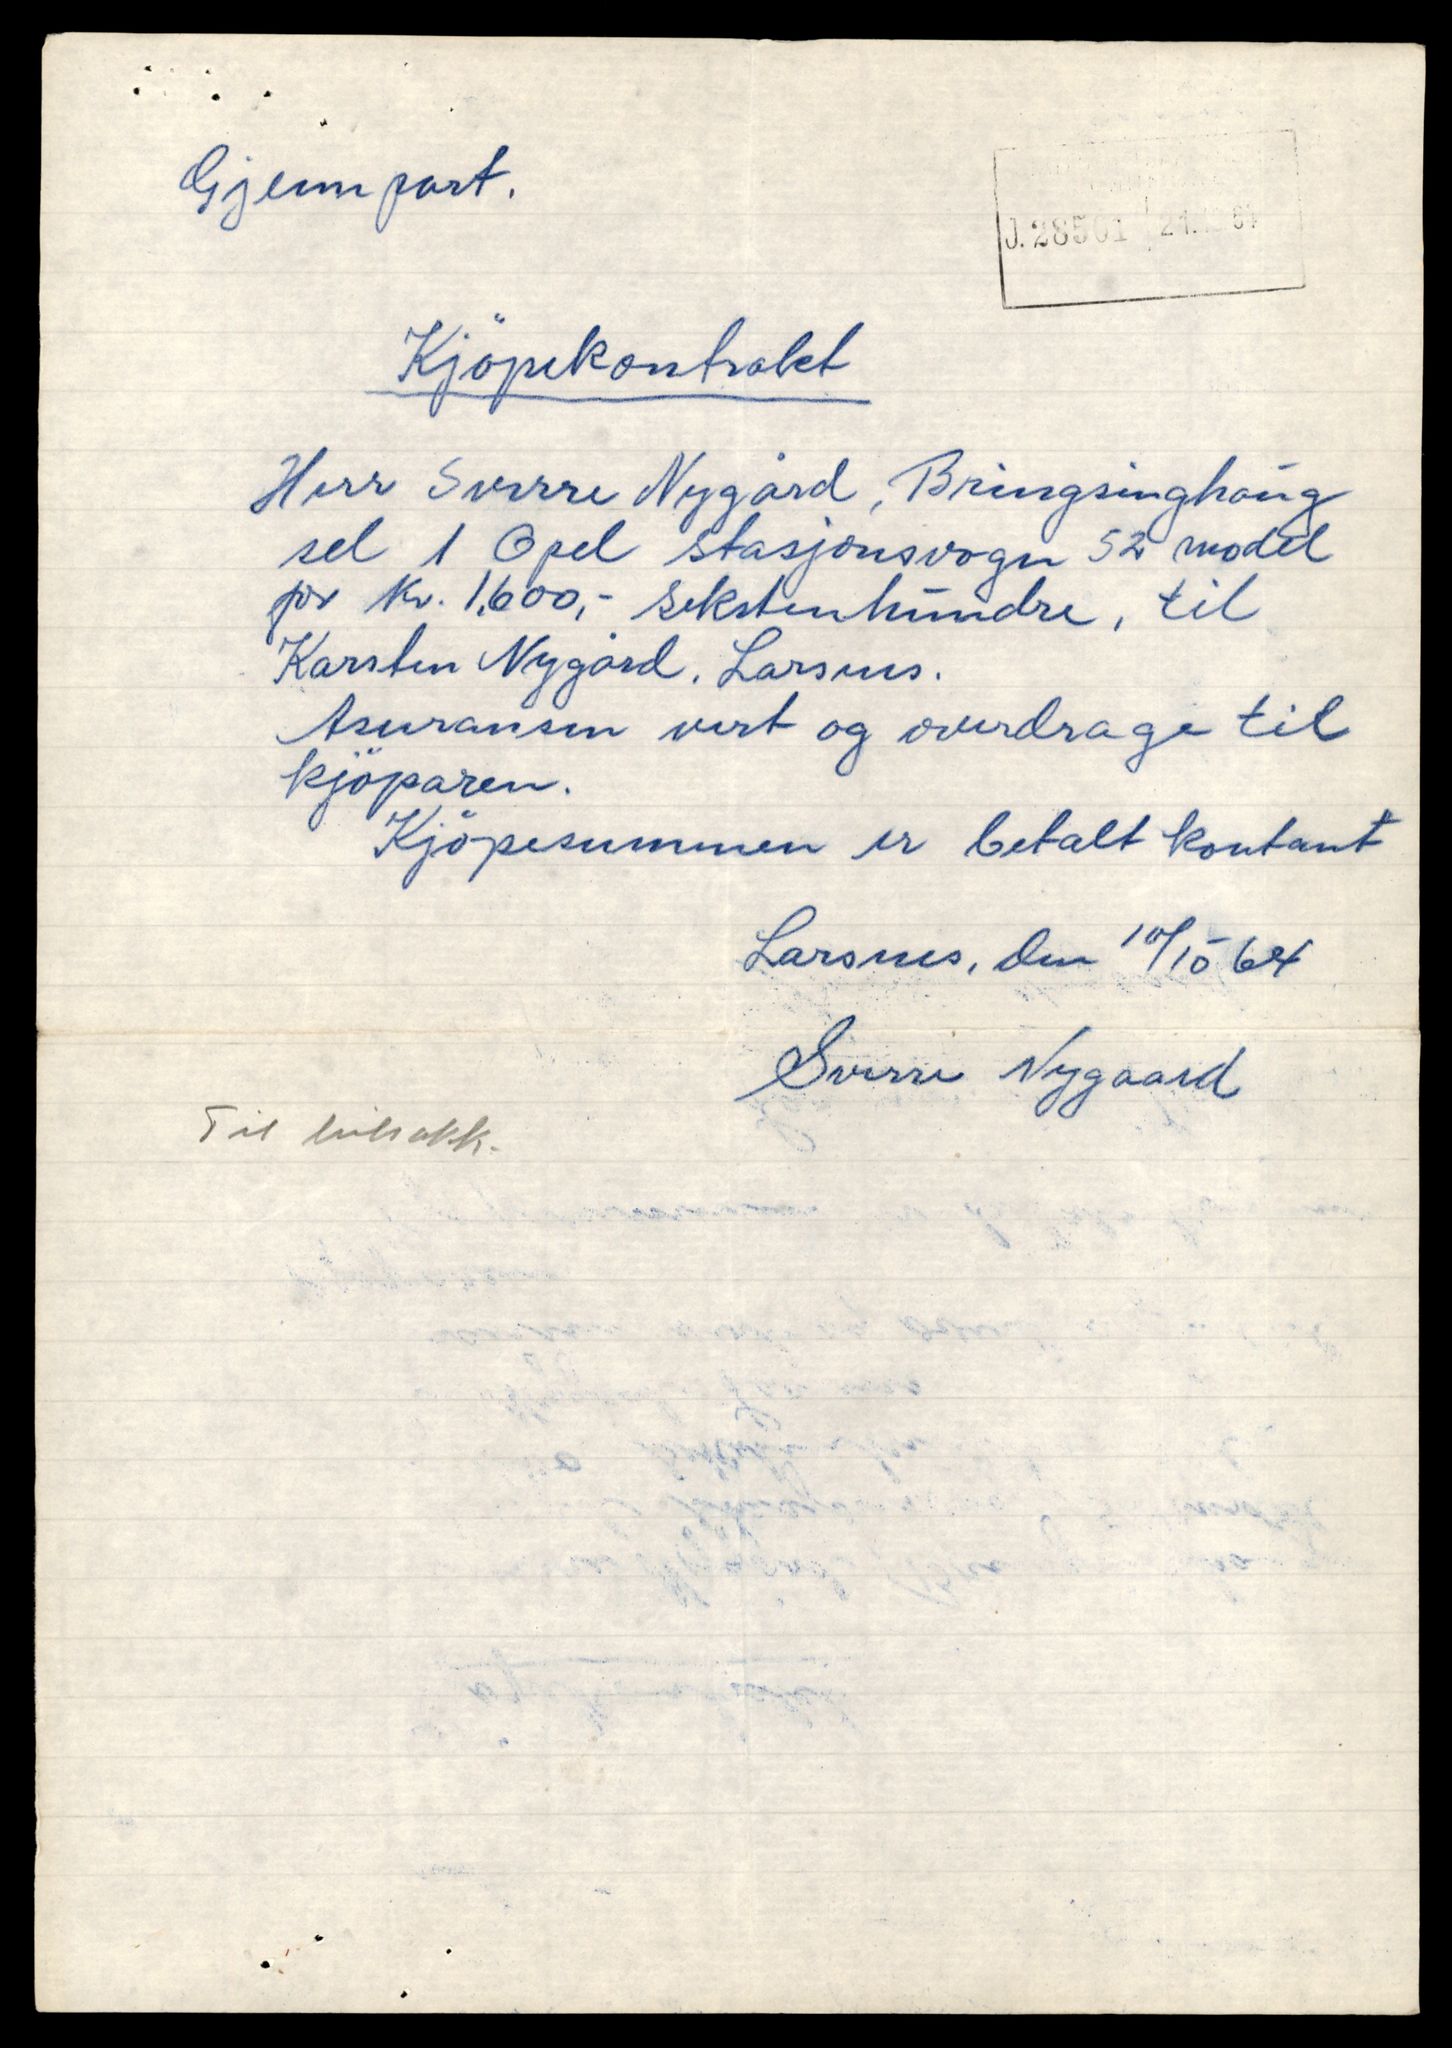 Gjennpart.
J. 28501 21. 64
Kjöpekontrakt
Herr Sverre Nygård, Bringsinghaug
sel 1 Opel stasjonsvogn 52 model
for kr. 1.600,- sekstenhundre, til
Karsten Nygård. Larsnes.
Asuransen vert og overdrage til
kjöparen.
Kjöpesummen er betalt kontant
Larsnes, den 10/10-64
Sverre Nygaard
Til